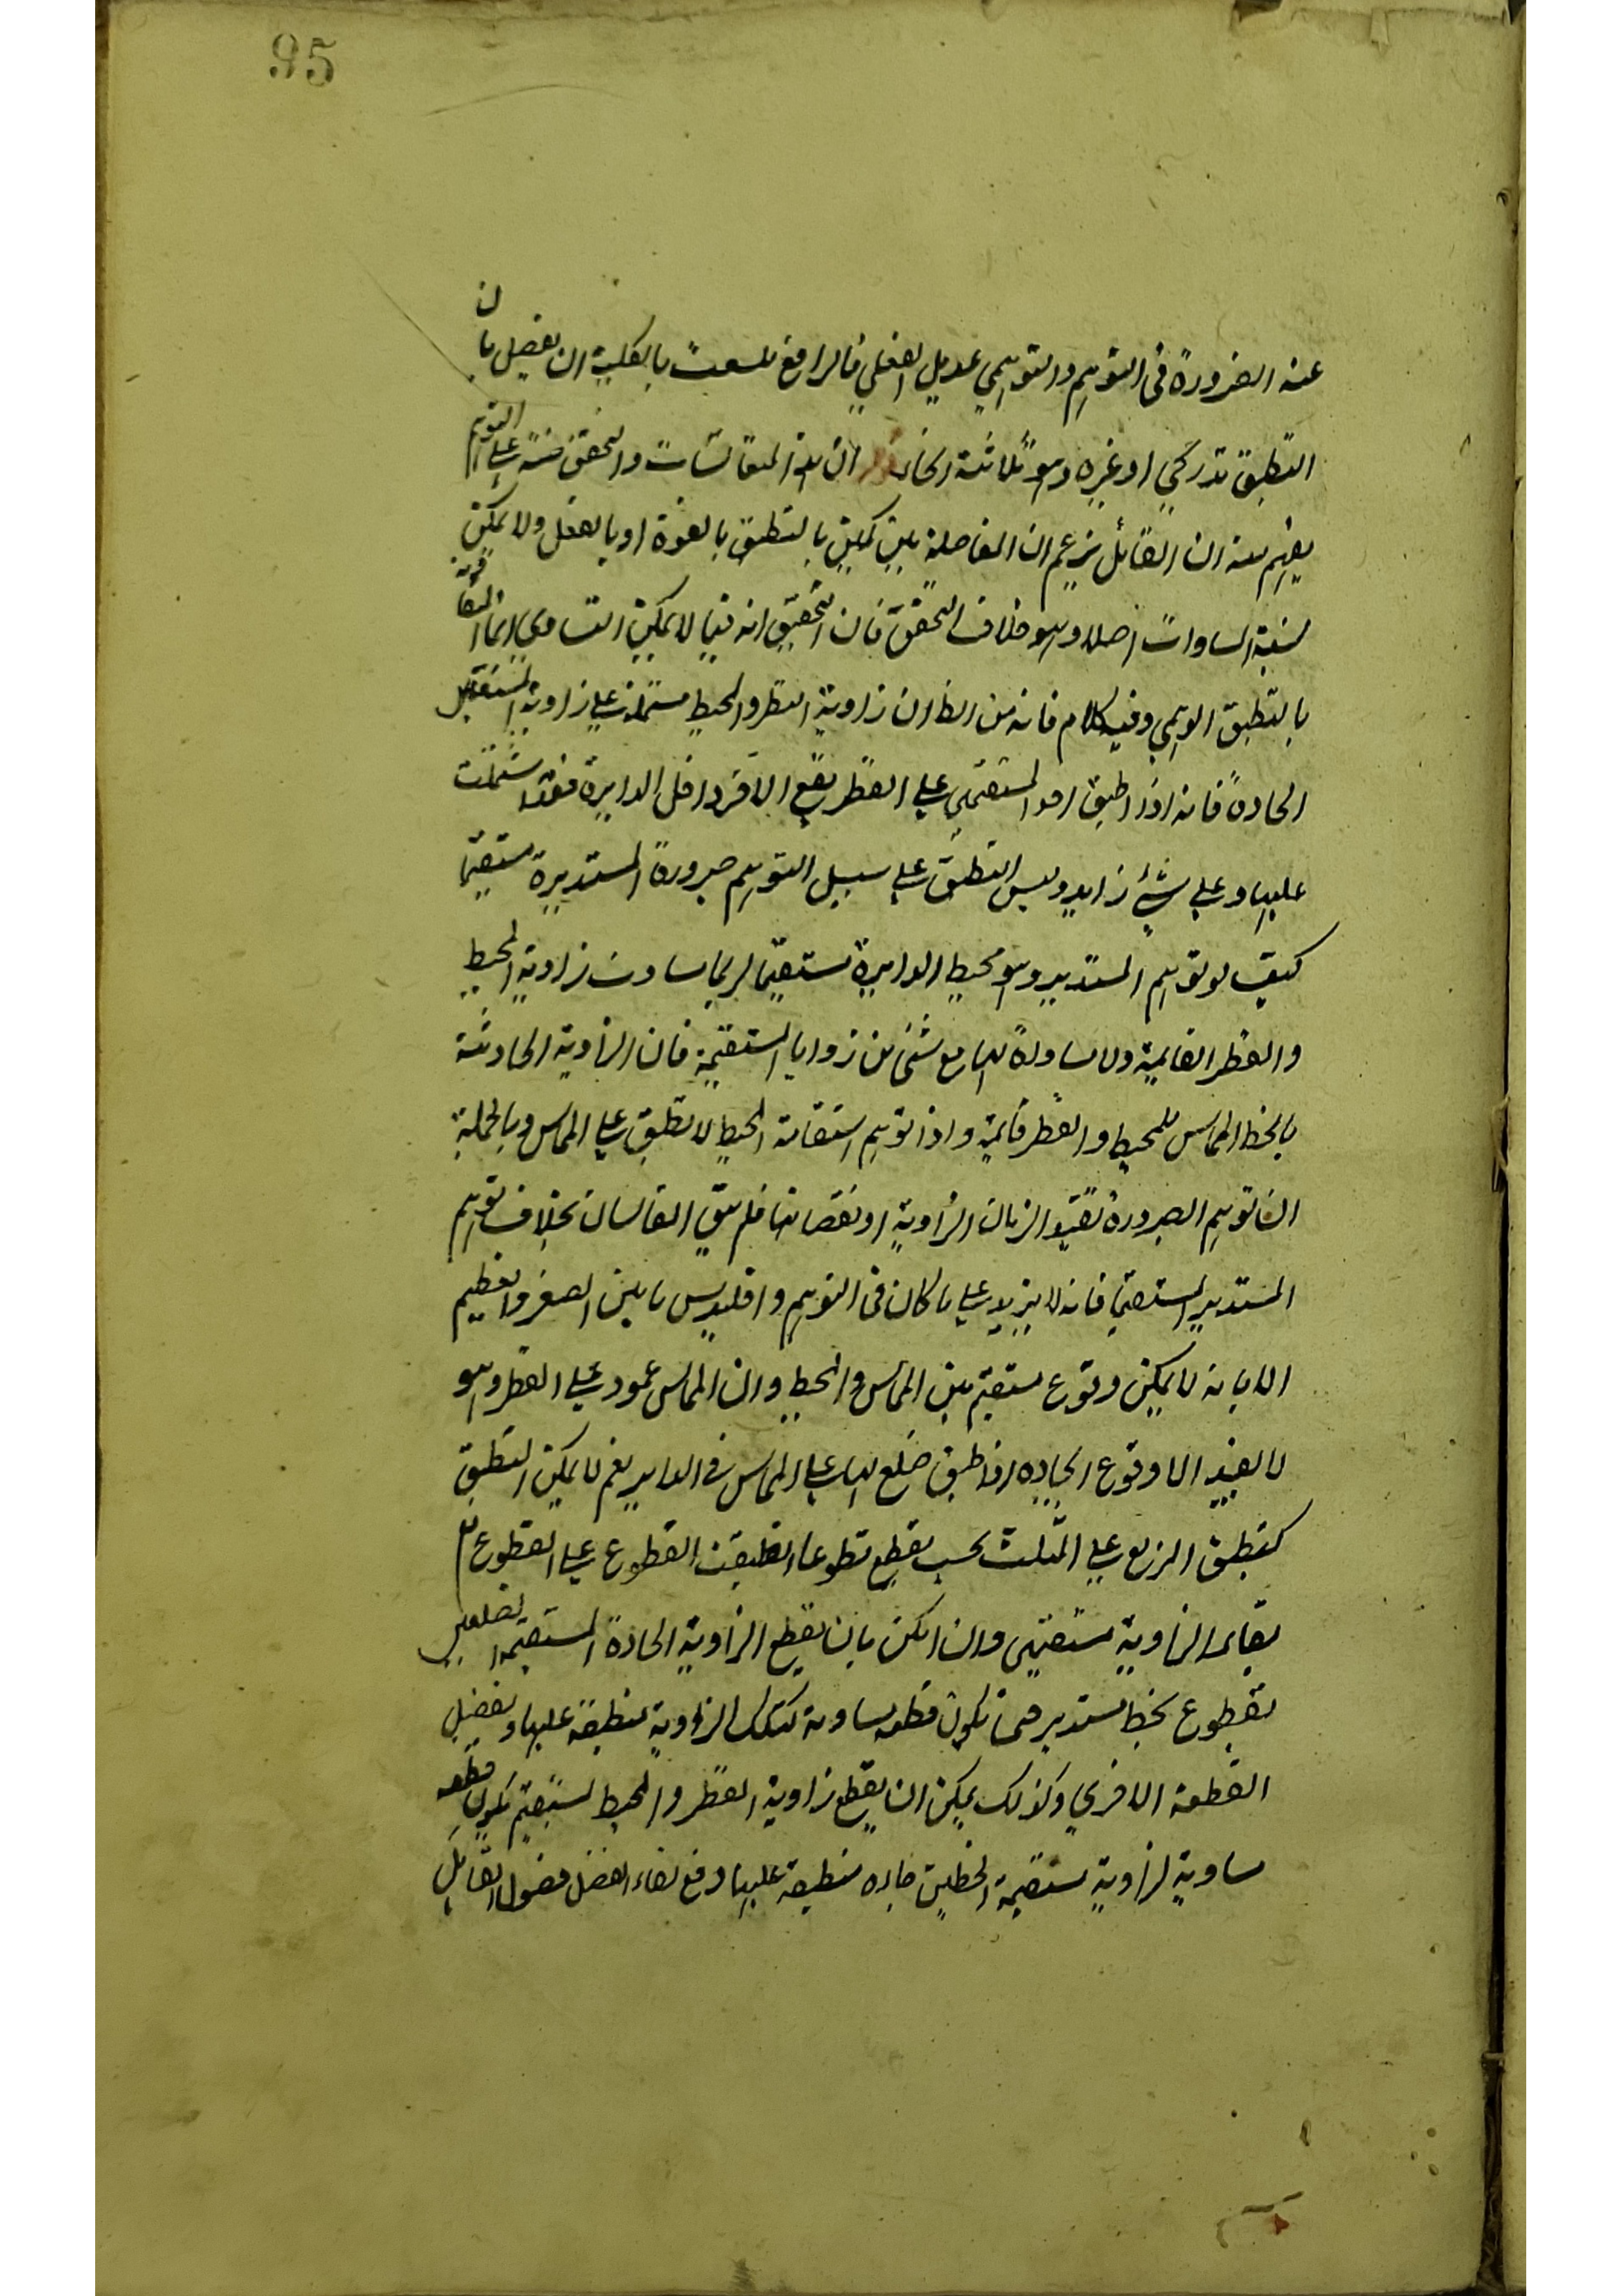 95
عنه الضرورة فى التوهم والتوهمي عديل الفعلي فالرافع بالكلية ان يفصل بان
التطبيق تدريجي او غيره وهو ثلاثة ان هذه المناقشات والتحقق على التوهم
يفهم منه ان القائل يزعم ان المفاصلة بين كمين بالتطبيق بالقوة او بالفعل ولا يمكن
نسبة المساوات اصلا وهو خلاف التحقق فان التحقيق انه فيما لا يمكن التساوى انما
بالتطبيق الوهمي وفيه كلام فانه من الظ ان زاوية القطر والمحيط مشتملة على زاوية المستقيمين
الحادة فانه اذا طبق احد المستقيمين على القطر يقع الآخر داخل الدايرة فقد اشتملت
عليها وعلى شئ زايد وليس التطبيق على سبيل التوهم صيرورة المستديرة مستقيما
كيف لو توهم المستدير وهو محيط الدايرة مستقيما لربما ساوت زاوية المحيط
والقطر القايمة ولا مساواة لها مع شئ من زوايا المستقيمة فان الزاوية الحادثة
بالخط المماس للمحيط والقطر قايمة واذا توهم استقامة المحيط لا تطبق على المماس وبالجملة
ان توهم الصيرورة تفيد الزيادة الزاوية او نقصانها فلم يبق القالسان بخلاف توهم
المستدير المستقيما فانه لا يزيد على ما كان فى التوهم واقليدس ما بين الصغر والعظيم
الا بانه لا يمكن وقوع مستقيم بين المماس والمحيط وان المماس عمود على القطر وهو
لا يفيد الا وقوع الحاده اذا طبق ضلع لها على المماس فى الداير نعم لا يمكن التطبيق
كتطبيق المربع على المثلث بحسب يقطع قطوعا انطبقت القطوع على القطوع
الزاوية مستقيمى وان امكن بان يقطع الزاوية الحادة المستقيمة الضلعين
بقطوع بخط مستدير حتى تكون قطعه مساوية لتلك الزاوية منطبقة عليها ويفضل
القطعة الاخرى وكذلك يمكن ان يقطع زاوية القطر والمحيط بمستقيم تكون قطعه
مساوية لزاوية مستقيمة الخطين حاده منطبقة عليها ومع بقاء الفضل فقول القايل